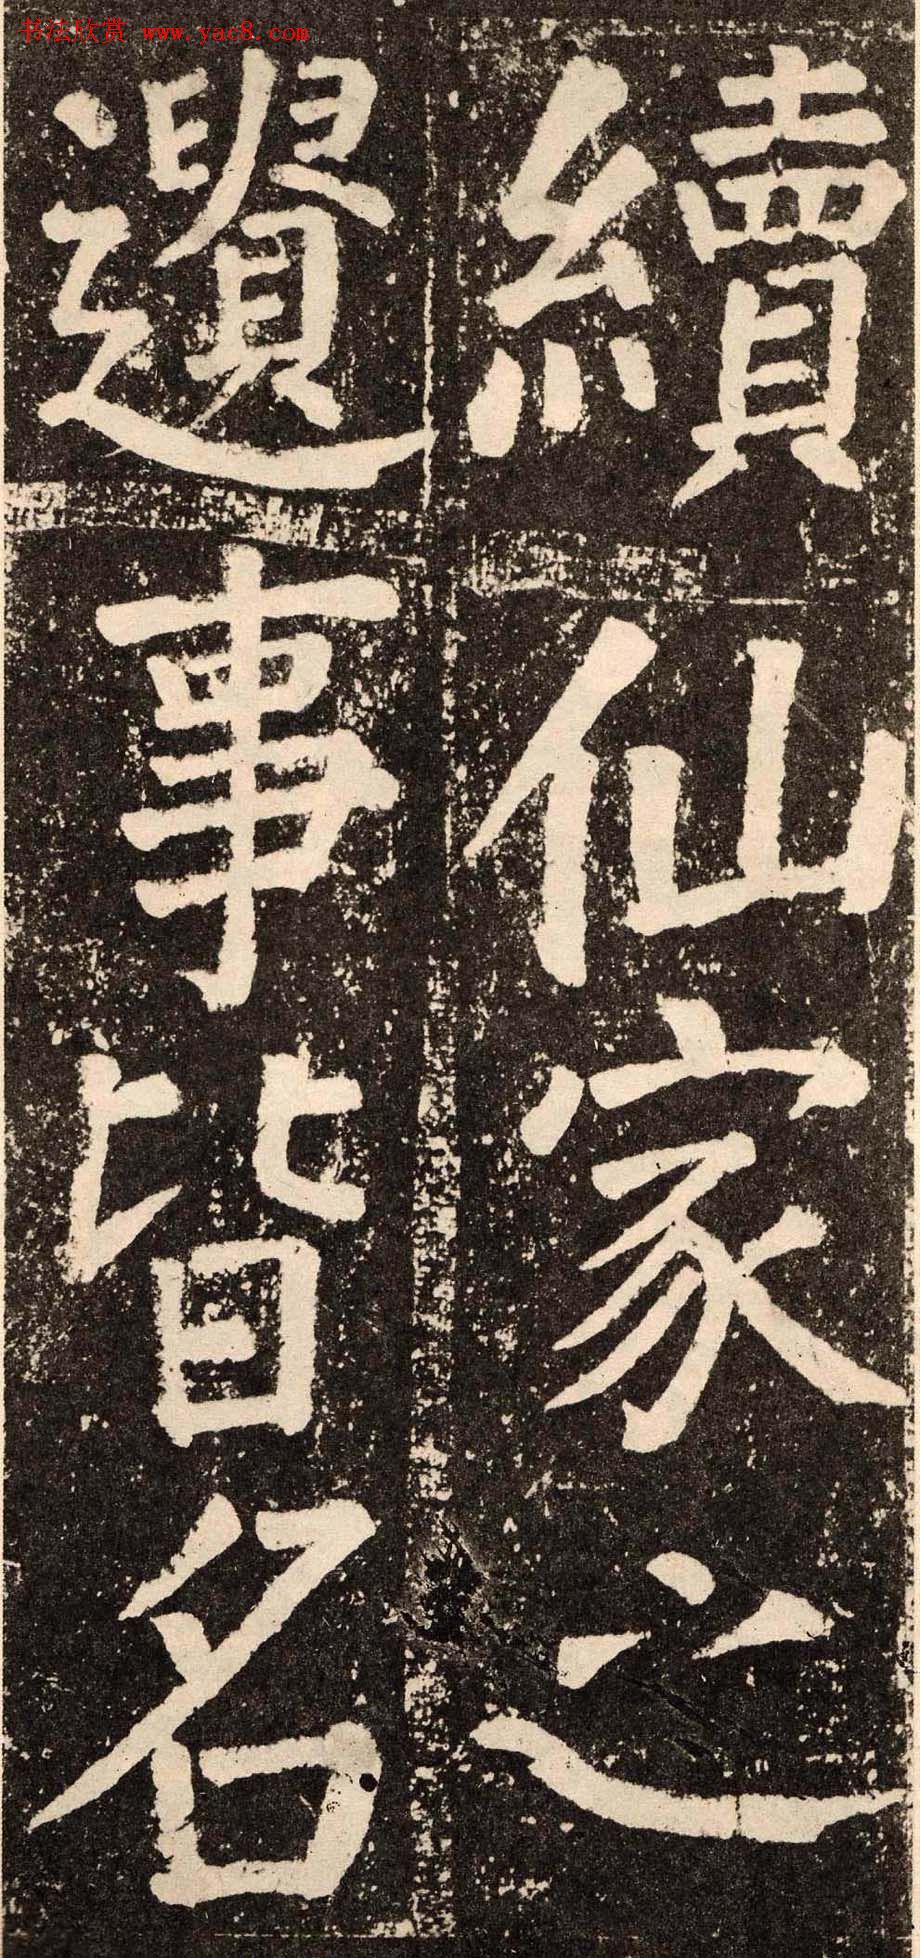 书法欣赏 www.yac8.com
續仙家之
遺事皆名